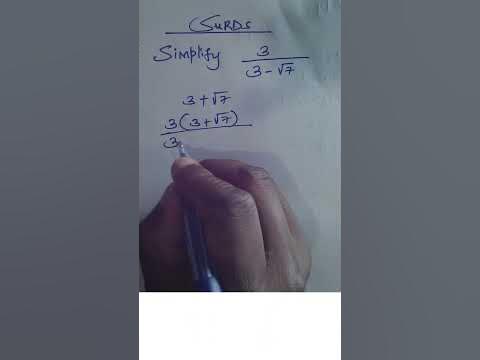 SURDS
Simplify 3 / 3 - √7
3 + √7
3 ( 3 + √7 ) / 3